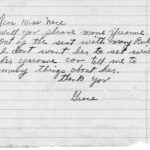 Dear Miss Nare
Will you please move Yvonne
out of the seat with Mary Rob
I don't want her to set with
her Yvonne can tell me to
many things about her.
Thank You
Grace